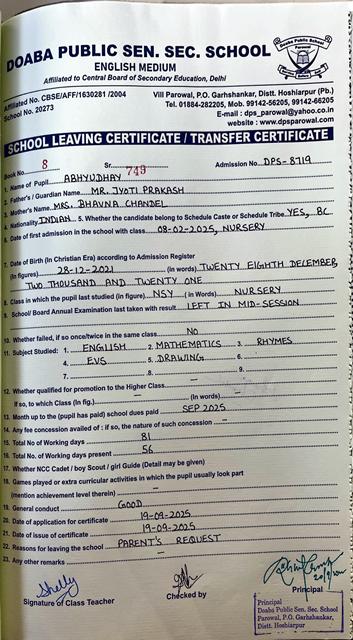 DOABA PUBLIC SEN. SEC. SCHOOL
ENGLISH MEDIUM
Affiliated to Central Board of Secondary Education, Delhi
Affiliated No. CBSE/AFF/1630281 /2004
School No. 20273
Vill Parowal, P.O. Garhshankar, Distt. Hoshiarpur (Pb.)
Tel. 01884-282205, Mob. 99142-56205, 99142-66205
E-mail : dps_parowal@yahoo.co.in
website : www.dpsparowal.com
SCHOOL LEAVING CERTIFICATE / TRANSFER CERTIFICATE
Book No 8 Sr. 749 Admission No. DPS-8719
1. Name of Pupil ABHYUDHAY
2. Father's / Guardian Name MR. JYOTI PRAKASH
3. Mother's Name MRS. BHAVNA CHANDEL
4. Nationality INDIAN 5. Whether the candidate belong to Schedule Caste or Schedule Tribe YES, BC
6. Date of first admission in the school with class 08-02-2025, NURSERY
7. Date of Birth (In Christian Era) according to Admission Register
(In figures) 28-12-2021 (in words) TWENTY EIGHTH DECEMBER,
TWO THOUSAND AND TWENTY ONE
8. Class in which the pupil last studied (in figure) NSY ( in Words) NURSERY
9. School/ Board Annual Examination last taken with result LEFT IN MID-SESSION
10. Whether failed, if so once/twice in the same class NO
11. Subject Studied: 1. ENGLISH 2. MATHEMATICS 3. RHYMES
4. EVS 5. DRAWING 6.
7. – 8. – 9. –
12. Whether qualified for promotion to the Higher Class –
If so, to which Class (In fig.) – (In words) –
13. Month up to the (pupil has paid) school dues paid SEP 2025
14. Any fee concession availed of : if so, the nature of such concession –
15. Total No of Working days 81
16. Total No. of Working days present 56
17. Whether NCC Cadet / boy Scout / girl Guide (Detail may be given)
18. Games played or extra curricular activities in which the pupil usually look part
(mention achievement level therein) –
19. General conduct GOOD
20. Date of application for certificate 19-09-2025
21. Date of issue of certificate 19-09-2025
22. Reasons for leaving the school PARENT'S REQUEST
23. Any other remarks –
Shelly
Signature of Class Teacher
Checked by
Principal
Principal
Doaba Public Sen. Sec. School
Parowal, P.O. Garhshankar,
Distt. Hoshiarpur